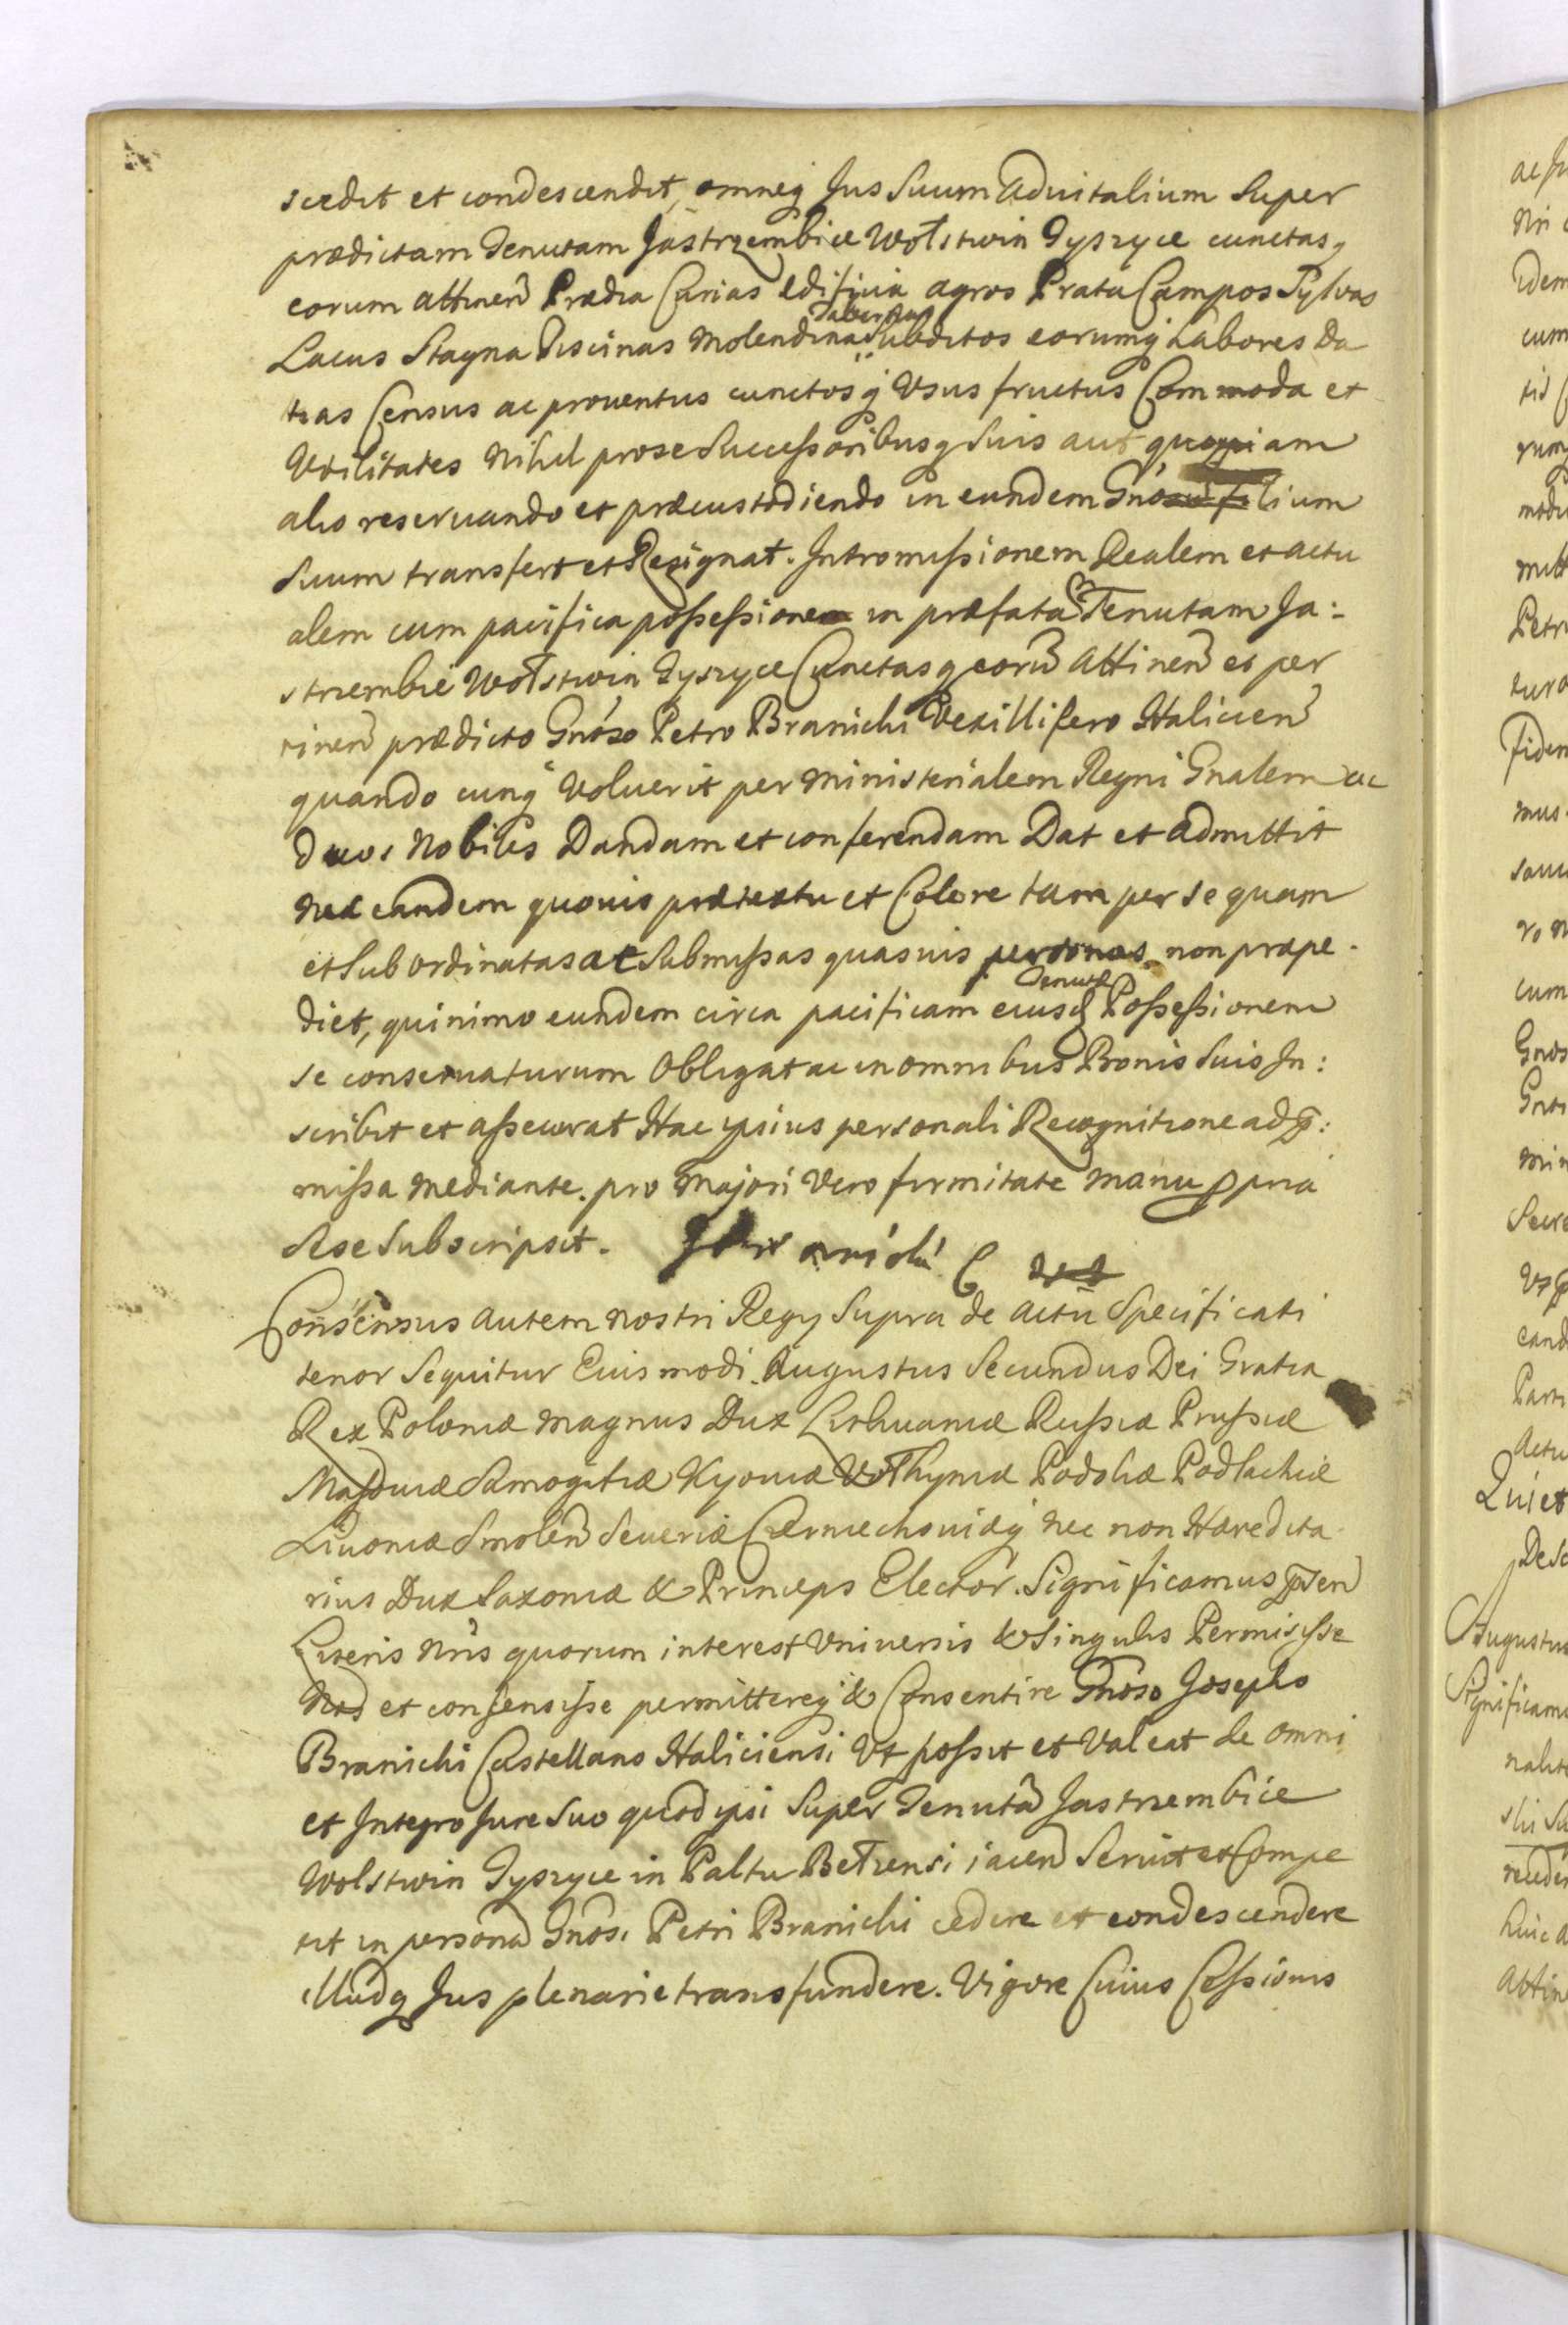 scedit et condescendit, omneq Jus Suum Aduitalium Super
prædictam Tenutam Jastrzembice Wołstwin Tyszyce cunctasq
eorum attinen Prædia Curias Edificia agros Prata Campos Sylvas
Tabernas
Lacus Stagna Piscinas Molendina Subditos eorumq Labores Da
tias Census ac prouentus cunctosq Usus fructus Commoda et
Utilitates Nihil pro se Successoribusq Suis aut quopiam
alio reseruando et præcustodiendo in eundem Gnosu filium
Suum transfert et Resignat. Intromissionem Realem et actu
alem cum pacifica possessione in præfatam Tenutam Ja:
strzembie Wołstwin Tyszyce Cunctasq eorū Attinen et per
tinen prædicto Gnoso Petro Branicki Vexillifero Halicien
quando cunq Voluerit per Ministerialem Regni Gnalem ac
duos Nobiles Dandam et conferendam Dat et admittit
Nec eandem quouis prætextu et Colore tam per se quam
et Subordinatas ac Submissas quasuis personas non præpe-
Tenutæ
diet, quinimo eundem circa pacificam eiusd Possessionem
se conseruaturum Obligat ac in omnibus Bonis Suis In:
scribit et assecurat Hac ipsius personali Recognitione ad p:
missa mediante. pro Majori Vero firmitate Manu ppria
se Subscripsit. C
Consensus autem nostri Regy Supra de actu Specificati
tenor Sequitur Eiusmodi. Augustus Secundus Dei Gratia
Rex Poloniæ Magnus Dux Lithuaniæ Russiæ Prussiæ
Masouiæ Samogitiæ Kyouiæ Vołhyniæ Podoliæ Podlachiæ
Liuoniæ Smolen Seueriæ Czerniechouiæq Nec non Hæredita
rius Dux Saxoniæ & Princeps Elector. Significamus psen
Literis Nris quorum interest Vniuersis & Singulis Permisisse
Nos et consensisse permittereq & Consentire Gnoso Josepho
Branicki Castellano Haliciensi Vt possit et Valeat de omni
et Integro Jure Suo quod ipsi Super Tenuta Jastrzembice
Wolstwin Tyszyce in Paltu Bełzensi iacen Seruit et Compe
tit in persona Gnosi Petri Branicki cedere et condescendere
illudq Jus plenarie transfundere. Vigore Cuius Cessionis